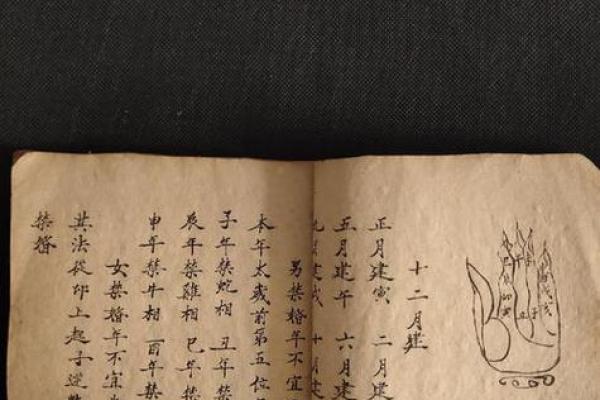 十二月建
正月建寅 二月建
五月建午 六月建
九月建戌 十月建
男禁婚年不宜
本年太歲前第五位
子年禁蛇相 丑年禁
辰年禁雞相 巳年禁
申年禁牛相 酉年禁
女禁婚年不宜
其法從卯上起子逆數
禁婚